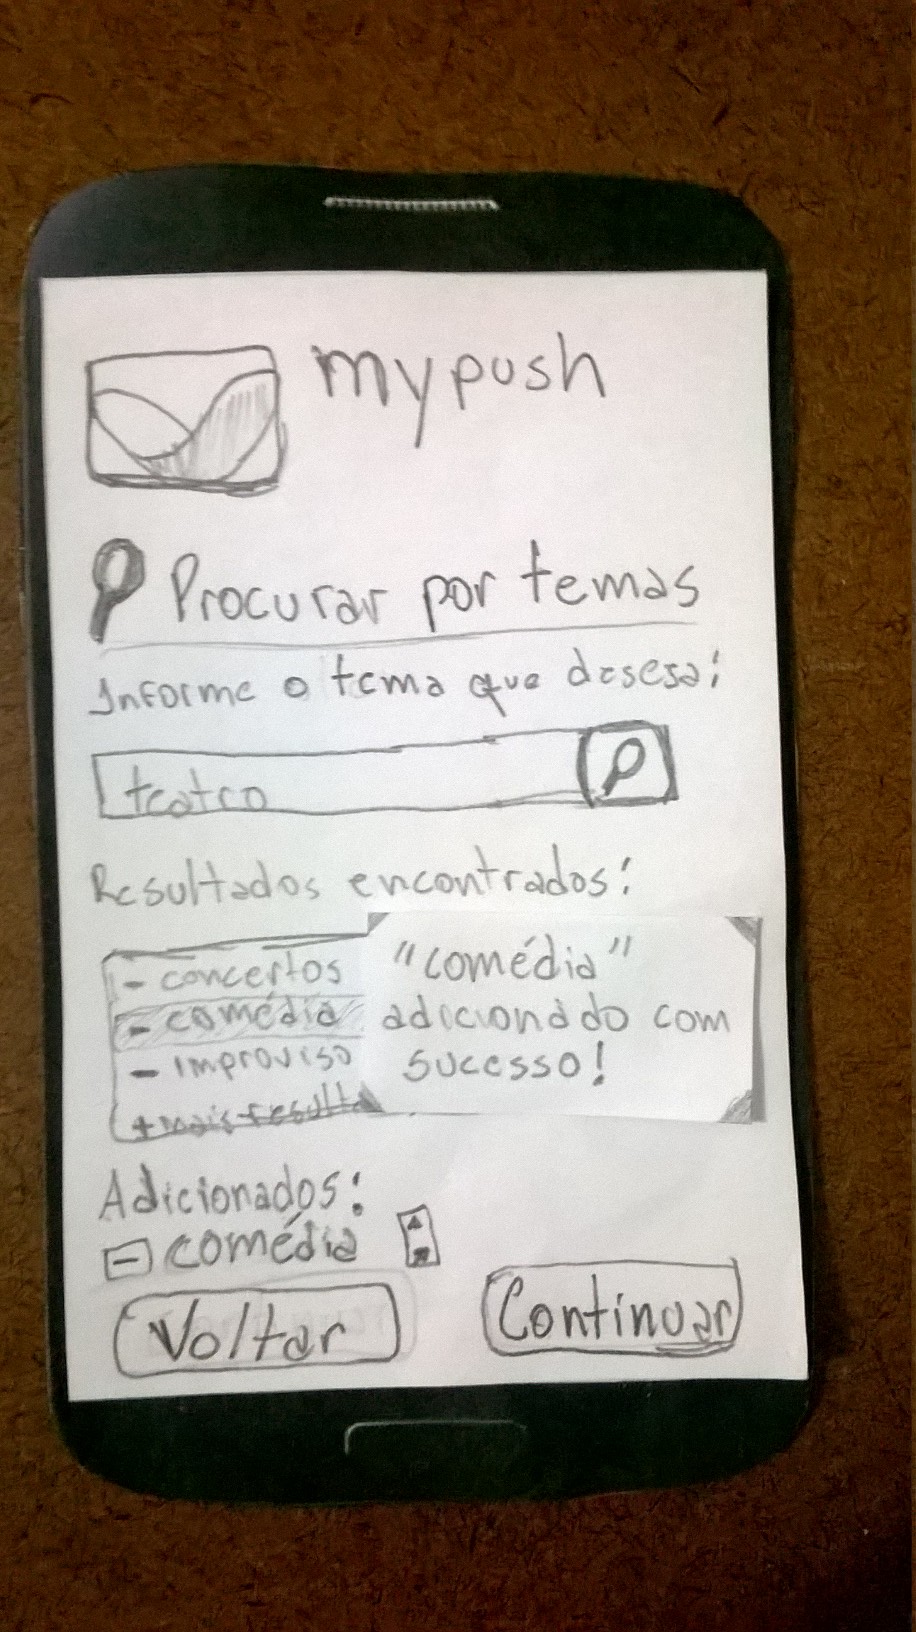 mypush
Procurar por temas
Informe o tema que deseja:
teatro
Resultados encontrados:
- concertos
- comédia
- improviso
+ mais resulta
"comédia"
adicionado com
sucesso!
Adicionados:
comédia
Voltar
Continuar